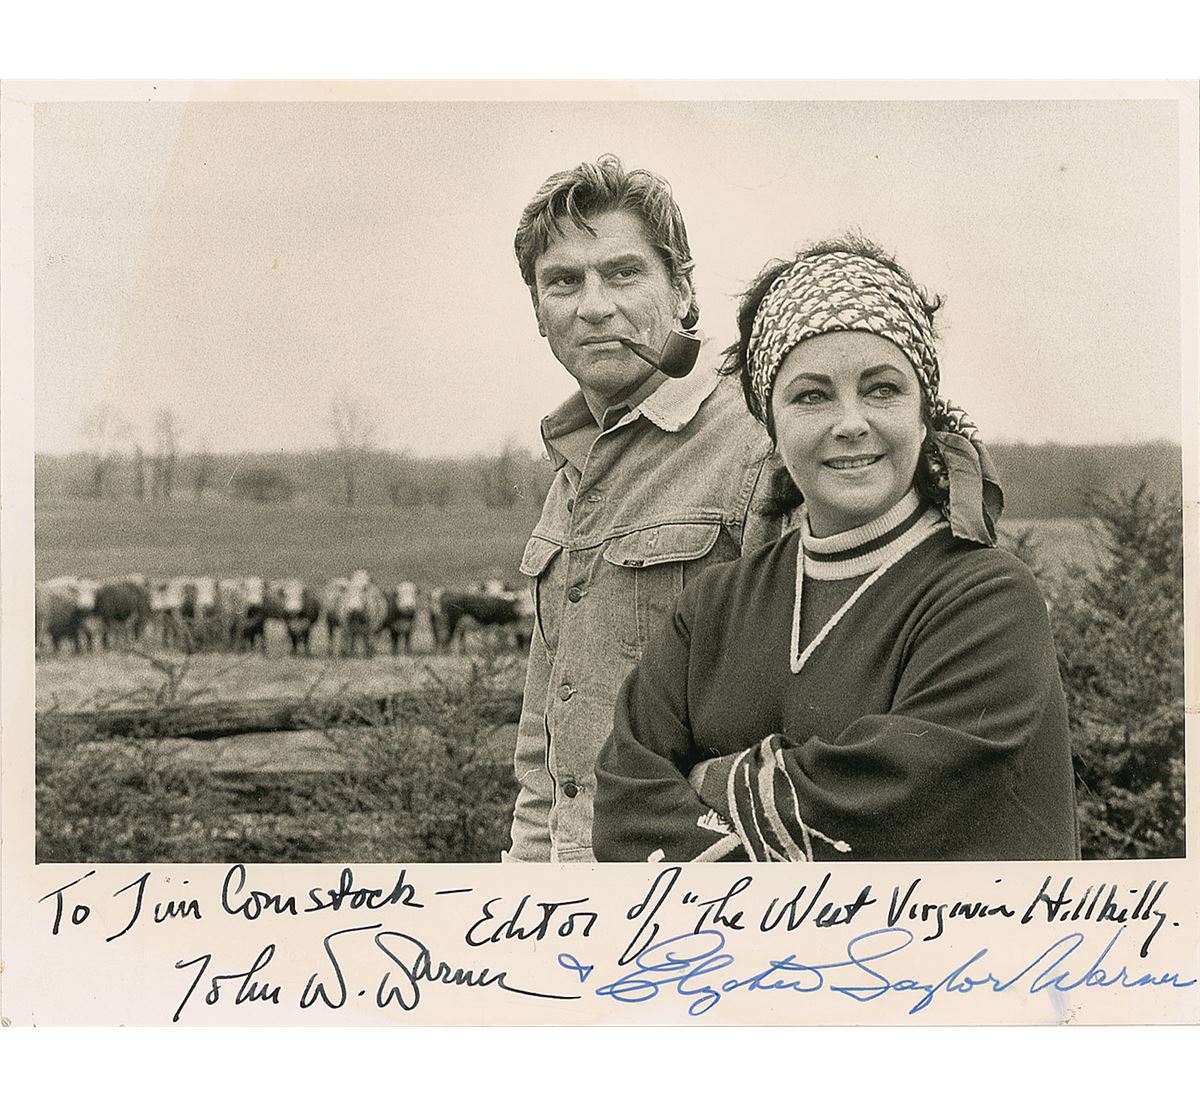 To Jim Comstock — Editor of "The West Virginia Hillbilly.
John W. Warner & Elizabeth Taylor Warner